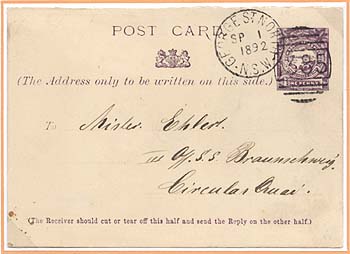 POST CARD
GEORGE ST NORTH N.S.W.
SP 1
1892
(The Address only to be written on this side.)
To Mister Ehlert.
III Off. S.S. Braunschweig
Circular Quai.
(The Receiver should cut or tear off this half and send the Reply on the other half.)